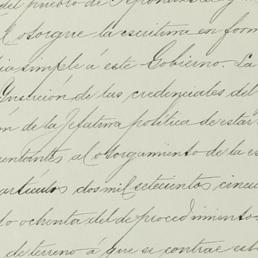 del pueblo de
otorgue la escritura en form
ia simple á este Gobierno. La
de las credenciales del
ón de la Jefatura política de estar
al otorgamiento de la es
artículos dos mil setecientos cincu
ochenta del de procedimientos
de terreno á que se contrae